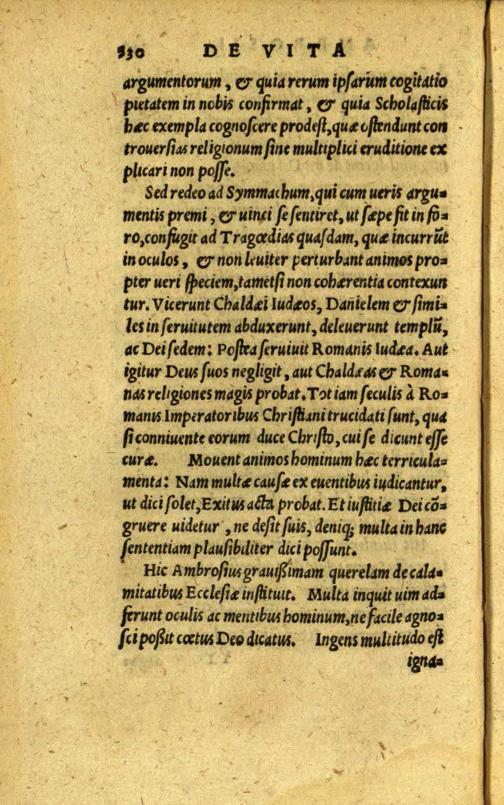 330 DE VITA
argumentorum, & quia rerum ipſarum cogitatio
pietatem in nobis confirmat, & quia Scholaſticis
hæc exempla cognoſcere prodeſt, quæ oſtendunt con
trouerſias religionum ſine multiplici eruditione ex
plicari non poſſe.
Sed redeo ad Symmachum, qui cum ueris argu-
mentis premi, & uinci ſe ſentiret, ut ſæpe fit in fo-
ro, confugit ad Tragœdias quaſdam, quæ incurrũt
in oculos, & non leuiter perturbant animos pro-
pter ueri ſpeciem, tametſi non cohærentia contexun
tur. Vicerunt Chaldæi Iudæos, Danielem & ſimi-
les in ſeruitutem abduxerunt, deleuerunt templũ,
ac Dei ſedem: Poſtea ſeruiuit Romanis Iudæa. Aut
igitur Deus ſuos negligit, aut Chaldæas & Roma-
nas religiones magis probat. Tot iam ſeculis à Ro-
manis Imperatoribus Chriſtiani trucidati ſunt, qua
ſi conniuente eorum duce Chriſto, cui ſe dicunt eſſe
curæ. Mouent animos hominum hæc terricula-
menta: Nam multæ cauſæ ex euentibus iudicantur,
ut dici ſolet, Exitus acta probat. Et iuſtitiæ Dei cõ-
gruere uidetur, ne deſit ſuis, deniq; multa in hanc
ſententiam plauſibiliter dici poſſunt.
Hic Ambroſius grauißimam querelam de cala-
mitatibus Eccleſiæ inſtituit. Multa inquit uim ad-
ferunt oculis ac mentibus hominum, ne facile agno-
ſci poßit cœtus Deo dicatus. Ingens multitudo eſt
igna-